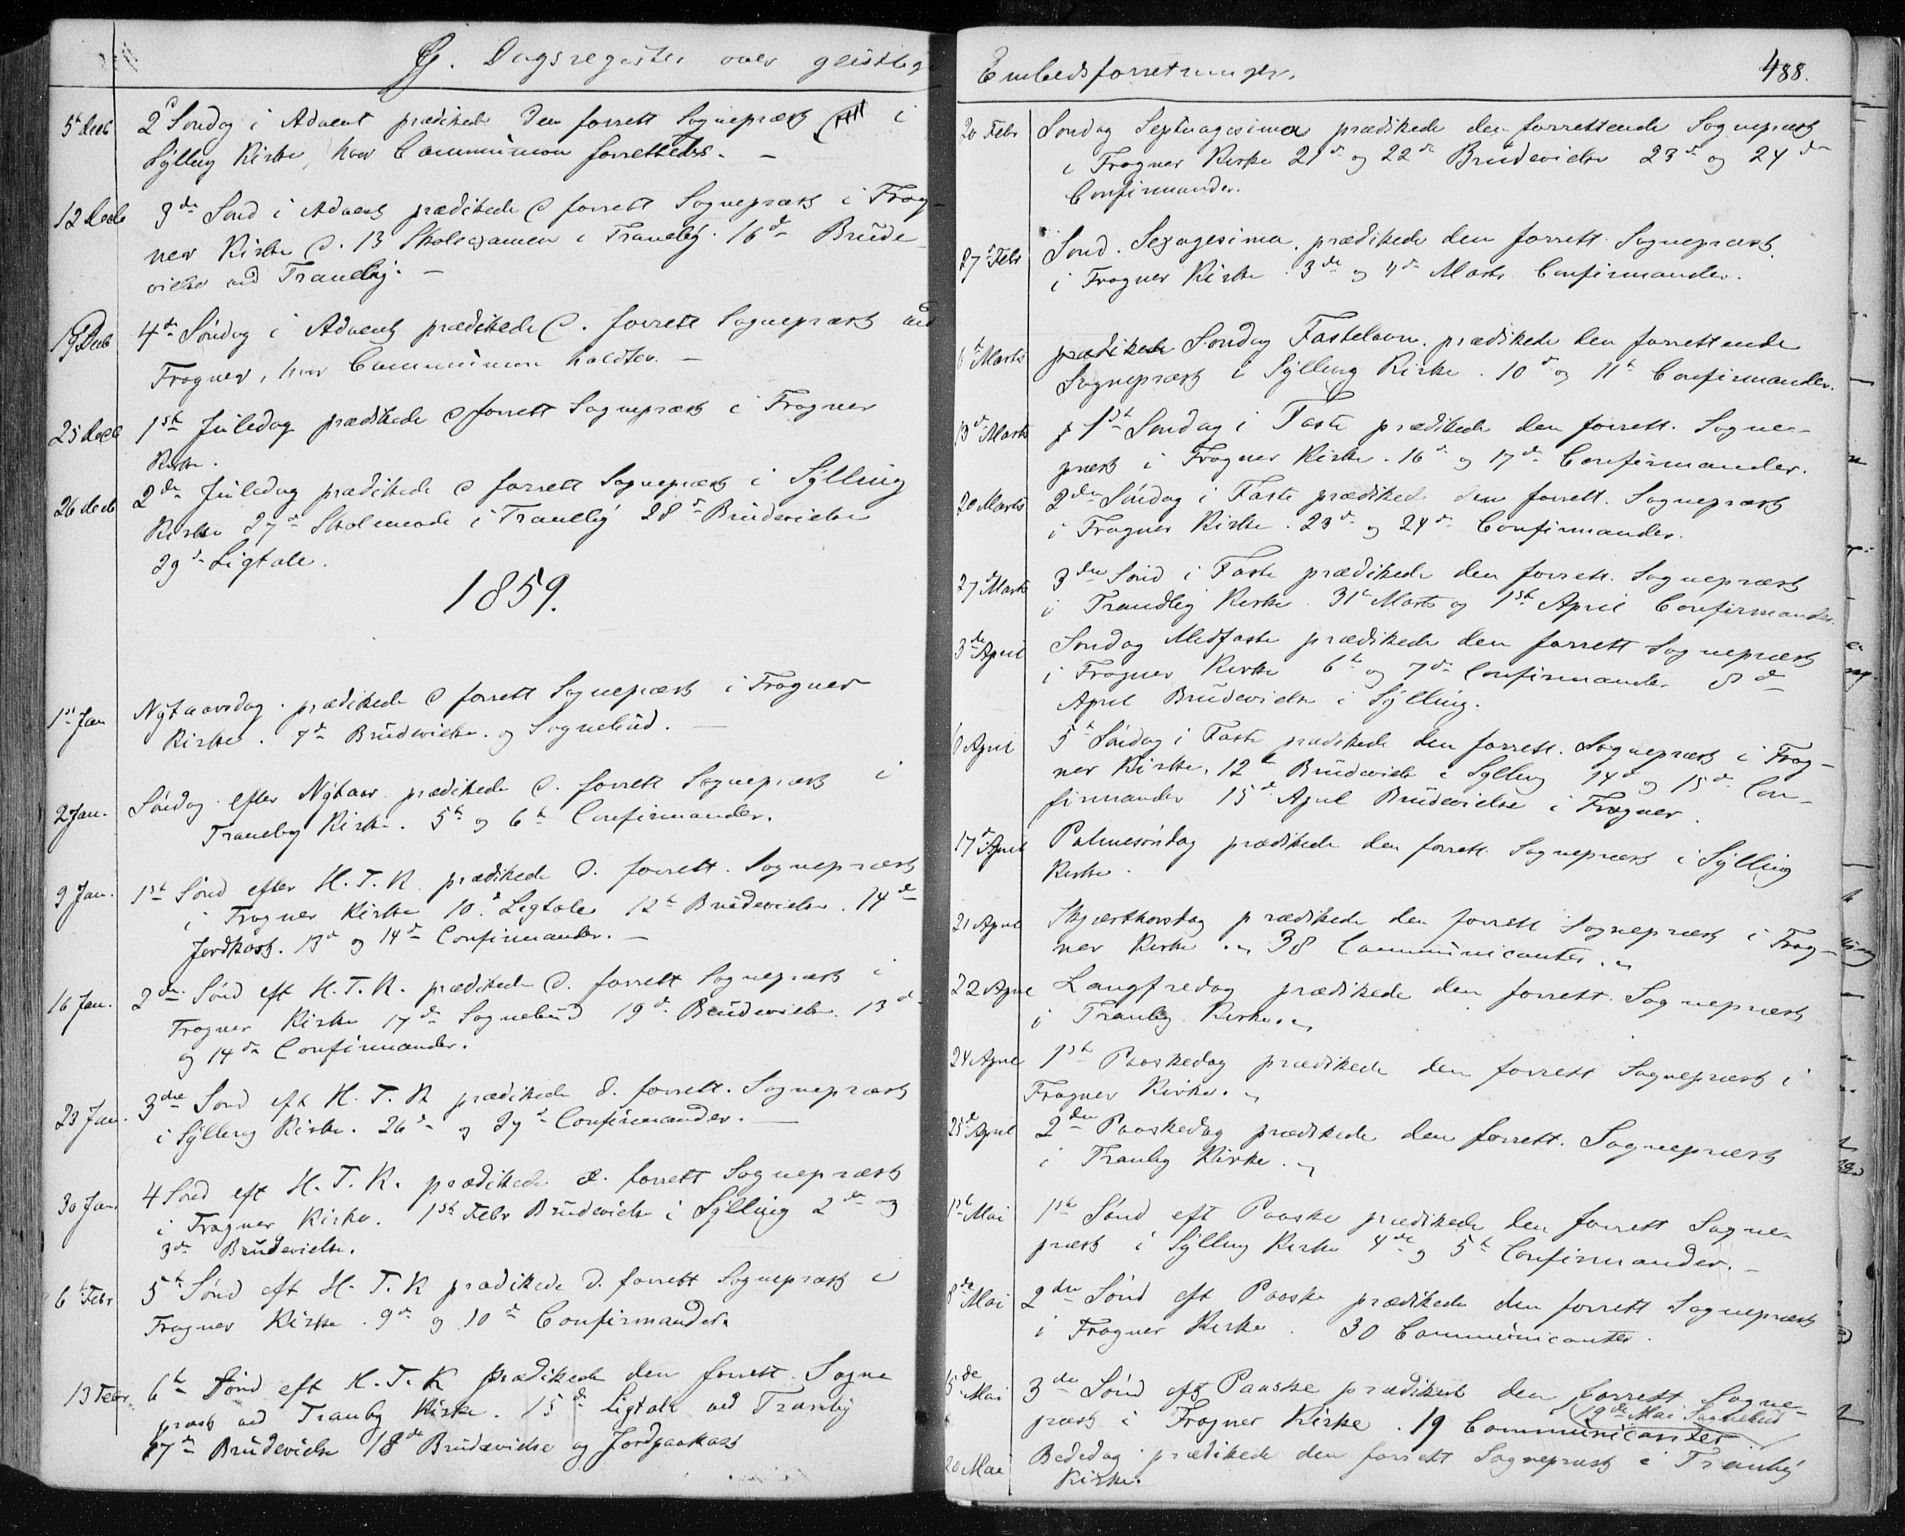 G. Dagsregister over geistlige
5t Decb 2d Søndag i Advent prædikede den forrett Sognepræst i
Sylling Kirke, hvor Communion forrettedes. –
12 Decb 3de Sønd i Advent prædikede d forrett Sognepræst i Frog-
ner Kirke d. 13 Skoleexamen i Tranebÿ. 16de Brude
vielse ved Tranebÿ. –
19 Decb 4de Søndag i Advent prædikede d. forrett Sognepræst ved
Frogner, hvor Communion holdtes. –
25 Decb 1ste Juledag prædikede d forrett Sognepræst i Frogner
Kirke.
26 Decb 2den Juledag prædikede d forrett Sognepræst i Sÿlling
Kirke 27de Skolemøde i Tranebÿ 28de Brudevielse
29de Ligtale.
1859.
1ste Jan Nÿtaarsdag. prædikede d forrett Sognepræst i Frogner
Kirke. 7de Brudevielse. og Sognebud. –
2 Jan. Søndag efter Nÿtaar prædikede d. forrett Sognepræst i
Tranebÿ Kirke. 5te og 6te Confirmander.
9 Jan. 1ste Sønd efter H. T. K. prædikede d. forrett. Sognepræst
i Frogner Kirke 10de Ligtale 12te Brudevielse. 14de
Jordkast. 13de og 14de Confirmander. –
16 Jan. 2den Sønd eft H. T. K. prædikede d. forrett Sognepræst i
Frogner Kirke 17de Sognebud 19de Brudevielse. 13de
og 14de Confirmander.
23 Jan. 3die Sønd eft H. T. K prædikede d. forrett. Sognepræst
i Sÿlling Kirke. 26de og 27de Confirmander. –
30 Jan 4 Sønd eft H. T. K. prædikede d. forrett Sognepræst
i Frogner Kirke. 1ste Febr Brudevielse i Sÿlling 2de og
3de Brudevielse.
6te Febr 5te Sønd eft H. T. K prædikede d. forrett Sognepræst i
Frogner Kirke. 9de og 10de Confirmander
13 Febr. 6te Sønd eft H. T. K prædikede den forrett. Sogne
præst ved Tranby Kirke. 15de Ligtale ved Tranbÿ
17de Brudevielse 18de Brudevielse og Jordpaakast
Embedsforretninger.
488.
20 Febr Søndag Septuagesima prædikede den forrettende Sognepræst
i Frogner Kirke 21de og 22de Brudevielse 23de og 24de
Confirmander.
27de Febr Sønd. Sexagesima. prædikede den forrett. Sognepræst
i Frogner Kirke. 3de og 4de Marts Confirmander.
6te Marts prædikede Søndag Fastelavn. prædikede den forrettende
Sognepræst i Sÿlling Kirke. 10de og 11te Confirmander.
13de Marts 1ste Søndag i Faste prædikede den forrett. Sogne-
præst i Frogner Kirke. 16de og 17de Confirmander.
20 Marts 2den Søndag i Faste prædikede den forrett. Sognepræst
i Frogner Kirke. 23de og 24de Confirmander.
27de Marts 3die Sønd i Faste prædikede den forrett. Sognepræst
i Trandbÿ Kirke. 31te Marts og 1ste April Confirmander.
3die April Søndag Midfaste prædikede den forrett Sognepræst
i Frogner Kirke 6te og 7de Confirmander 8de
April Brudevielse i Sÿlling.
April 5te Søndag i Faste prædikede den forrett. Sognepræst i Frog-
ner Kirke. 12te Brudevielse i Sÿlling 14de og 15de Con-
firmander 15de April Brudevielse i Frogner.
17de April Palmesøndag prædikede den forrett Sognepræst i Sÿlling
Kirke.
21 April Skjærthorsdag prædikede den forrett Sognepræst i Frog-
ner Kirke. 38 Communicanter.
22 April Langfredag prædikede den forrett. Sognepræst
i Tranby Kirke.
24 April 1ste Paaskedag prædikede den forrett Sognepræst i
Frogner Kirke.
25de April 2den Paaskedag prædikede den forrett. Sognepræst
i Tranby Kirke.
1ste Mai 1ste Sønd eft Paaske prædikede den forrett Sogne-
præst i Sÿlling Kirke 4de og 5te Confirmander. –
8de Mai 2den Sønd eft Paaske prædikede den forrett Sognepræst
i Frogner Kirke. 30 Communicanter.
15de Mai 3die Sønd eft Paaske prædikede den forrett Sogne-
præst i Frogner Kirke. 19 Communicanter (19de Mai Sognebud
20 Mai Bededag prædikede den forrett Sognepræst i Tranbÿ
Kirke.